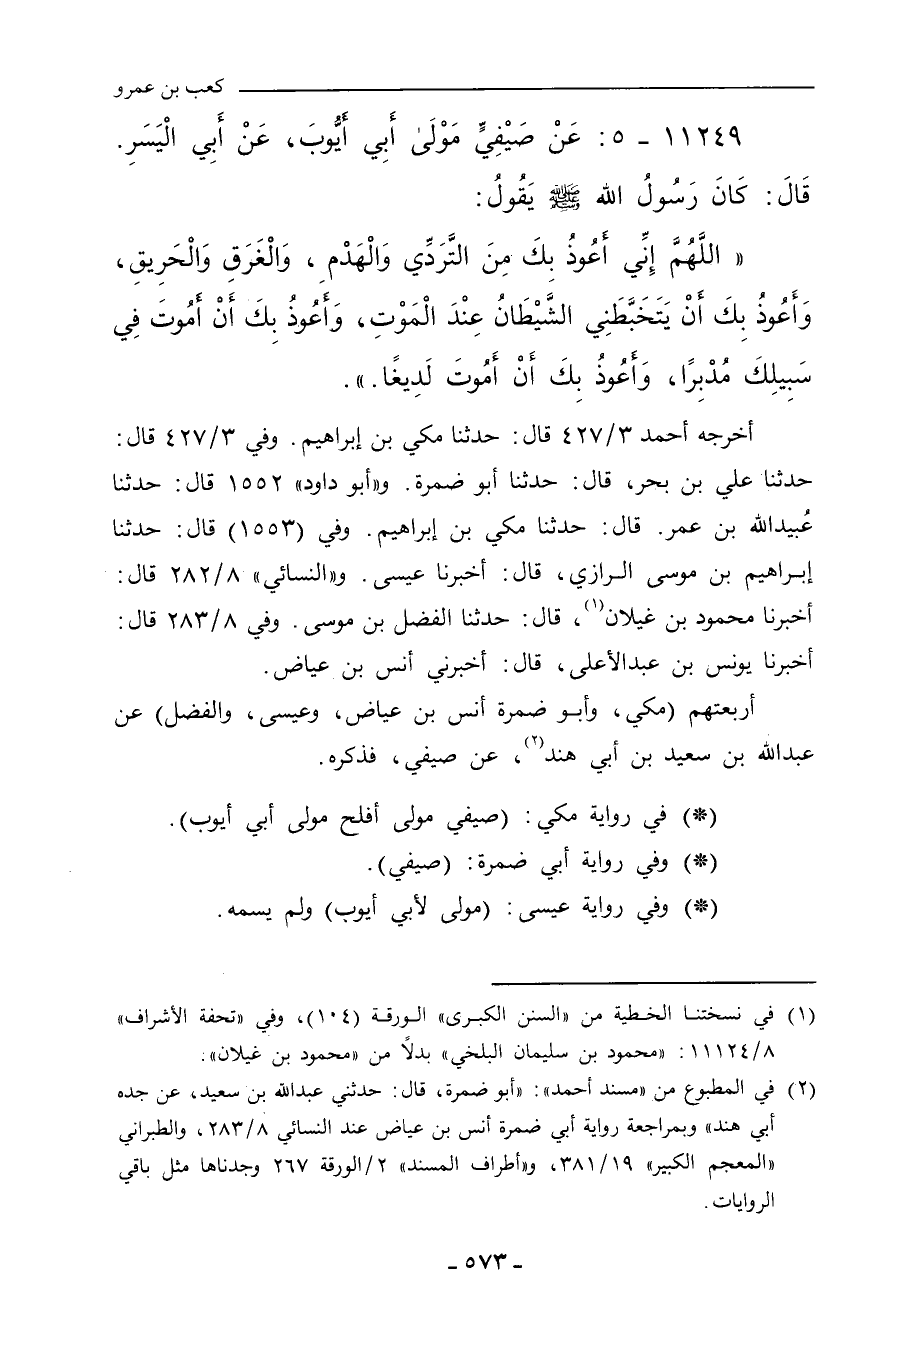 كعب بن عمرو
١١٢٤٩ - ٥: عَنْ صَيْفِيٍّ مَوْلَىٰ أَبِي أَيُّوبَ، عَنْ أَبِي الْيَسَرِ.
قَالَ: كَانَ رَسُولُ الله ﷺ يَقُولُ:
« اللَّهُمَّ إِنِّي أَعُوذُ بِكَ مِنَ التَّرَدِّي وَالْهَدْمِ ، وَالْغَرَقِ وَالْحَرِيقِ،
وَأَعُوذُ بِكَ أَنْ يَتَخَبَّطَنِي الشَّيْطَانُ عِنْدَ الْمَوْتِ، وَأَعُوذُ بِكَ أَنْ أَمُوتَ فِي
سَبِيلِكَ مُدْبِرًا، وَأَعُوذُ بِكَ أَنْ أَمُوتَ لَدِيغًا. ».
أخرجه أحمد ٤٢٧/٣ قال: حدثنا مكي بن إبراهيم. وفي ٤٢٧/٣ قال:
حدثنا علي بن بحر، قال: حدثنا أبو ضمرة. و«أبو داود» ١٥٥٢ قال: حدثنا
عُبيدالله بن عمر. قال: حدثنا مكي بن إبراهيم. وفي (١٥٥٣) قال: حدثنا
إبراهيم بن موسى الرازي، قال: أخبرنا عيسى. و«النسائي» ٢٨٢/٨ قال:
أخبرنا محمود بن غيلان(١)، قال: حدثنا الفضل بن موسى. وفي ٢٨٣/٨ قال:
أخبرنا يونس بن عبدالأعلى، قال: أخبرني أنس بن عياض.
أربعتهم (مكي، وأبو ضمرة أنس بن عياض، وعيسى، والفضل) عن
عبدالله بن سعيد بن أبي هند(٢)، عن صيفي، فذكره.
(*) في رواية مكي: (صيفي مولى أفلح مولى أبي أيوب).
(*) وفي رواية أبي ضمرة: (صيفي).
(*) وفي رواية عيسى: (مولى لأبي أيوب) ولم يسمه.
(١) في نسختنا الخطية من «السنن الكبرى» الورقة (١٠٤)، وفي «تحفة الأشراف»
١١١٢٤/٨: «محمود بن سليمان البلخي» بدلاً من «محمود بن غيلان».
(٢) في المطبوع من «مسند أحمد»: «أبو ضمرة، قال: حدثني عبدالله بن سعيد، عن جده
أبي هند» وبمراجعة رواية أبي ضمرة أنس بن عياض عند النسائي ٢٨٣/٨، والطبراني
«المعجم الكبير» ٣٨١/١٩، و«أطراف المسند» ٢/الورقة ٢٦٧ وجدناها مثل باقي
الروايات.
- ٥٧٣ -